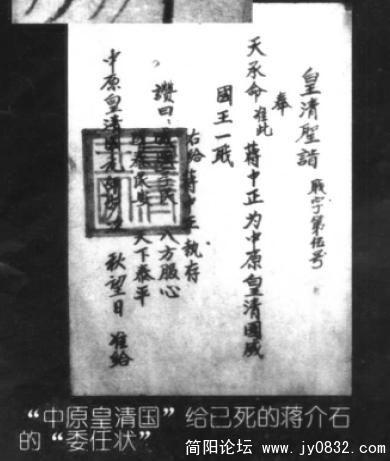 皇清聖
字第伍号
奉
天承命准此 蔣中正为中原皇清國威
國王一
右给蔣中正執存
讚曰 八方服心
天下泰平
中原皇清國元 秋望日 准给
“中原皇清国”给已死的蒋介石
的“委任状”
简阳论坛 www.jy0832.com